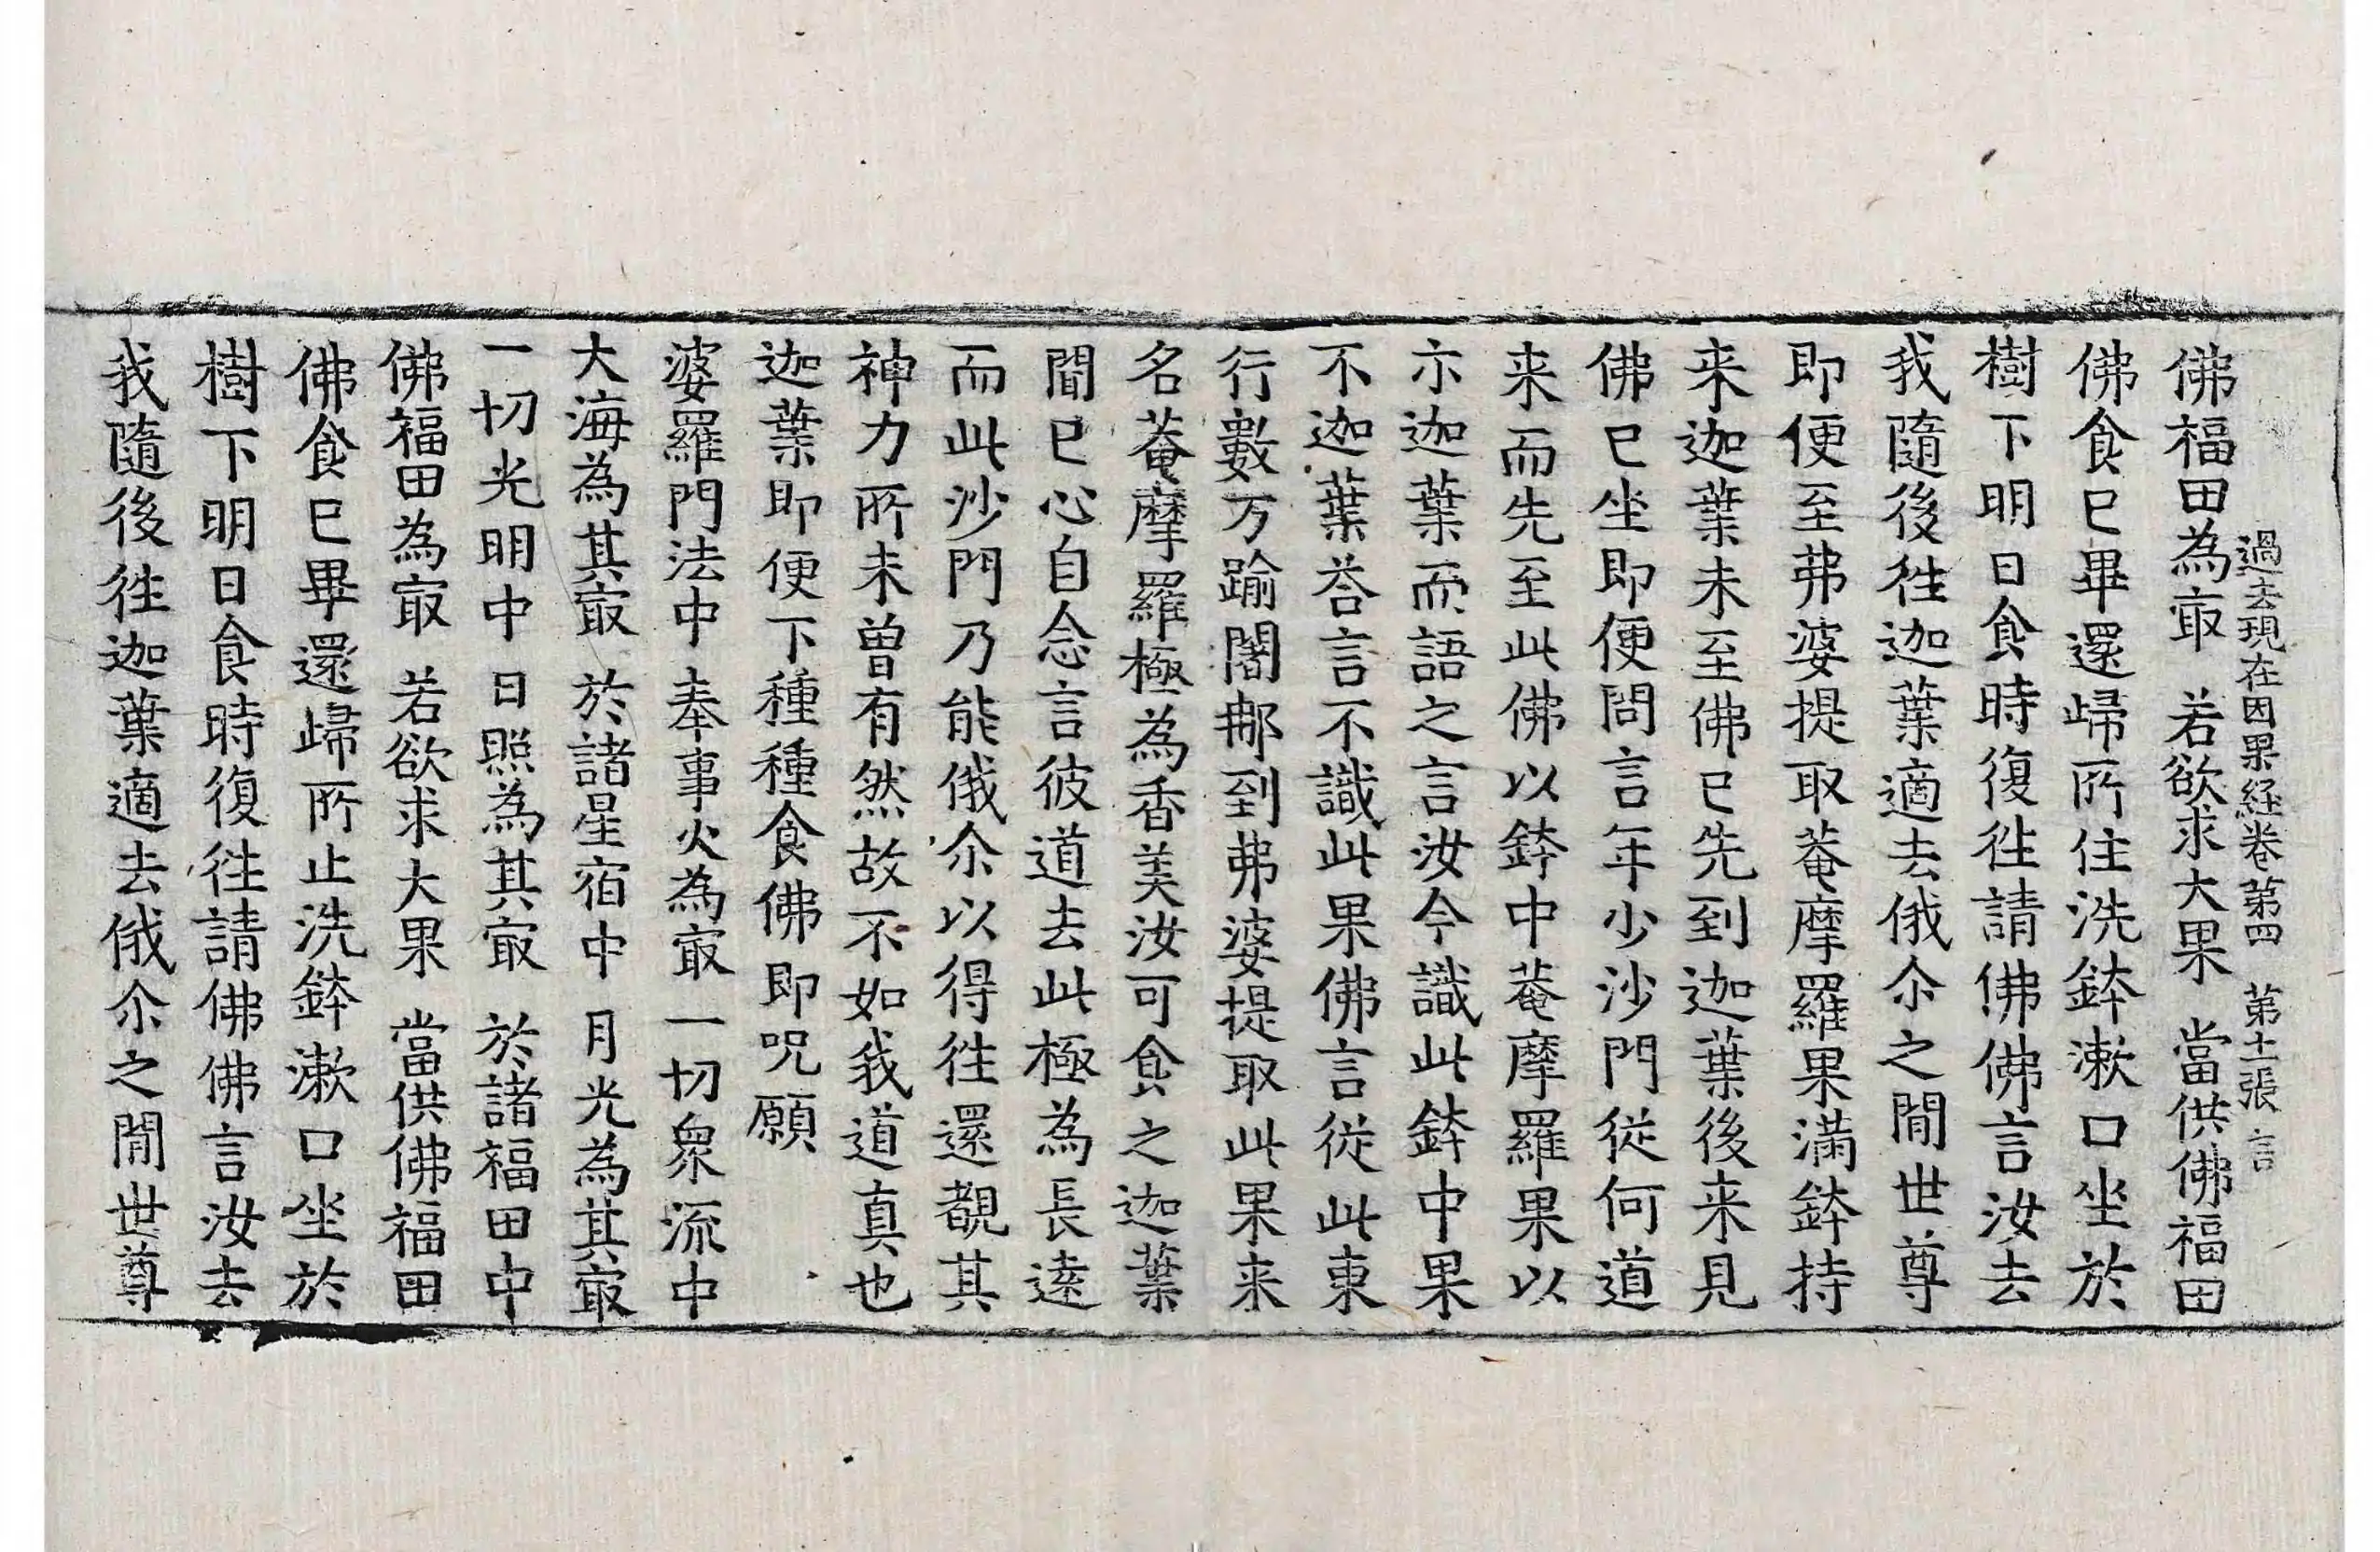 過去現在因果経卷第四 第十二張 言
佛福田為㝡 若欲求大果 當供佛福田
佛食已畢還歸所住洗鉢漱口坐於
樹下明日食時復往請佛佛言汝去
我隨後往迦葉適去俄尒之閒世尊
即便至弗婆提取菴摩羅果滿鉢持
来迦葉未至佛已先到迦葉後来見
佛已坐即便問言年少沙門從何道
来而先至此佛以鉢中菴摩羅果以
示迦葉而語之言汝今識此鉢中果
不迦葉荅言不識此果佛言從此東
行數万踰闍那到弗婆提取此果来
名菴摩羅極為香美汝可食之迦葉
聞已心自念言彼道去此極為長遠
而此沙門乃能俄尒以得往還覩其
神力所未曾有然故不如我道真也
迦葉即便下種種食佛即呪願
婆羅門法中 奉事火為㝡 一切衆流中
大海為其㝡 於諸星宿中 月光為其㝡
一切光明中 日照為其㝡 於諸福田中
佛福田為㝡 若欲求大果 當供佛福田
佛食已畢還歸所止洗鉢漱口坐於
樹下明日食時復往請佛佛言汝去
我隨後往迦葉適去俄尒之閒世尊